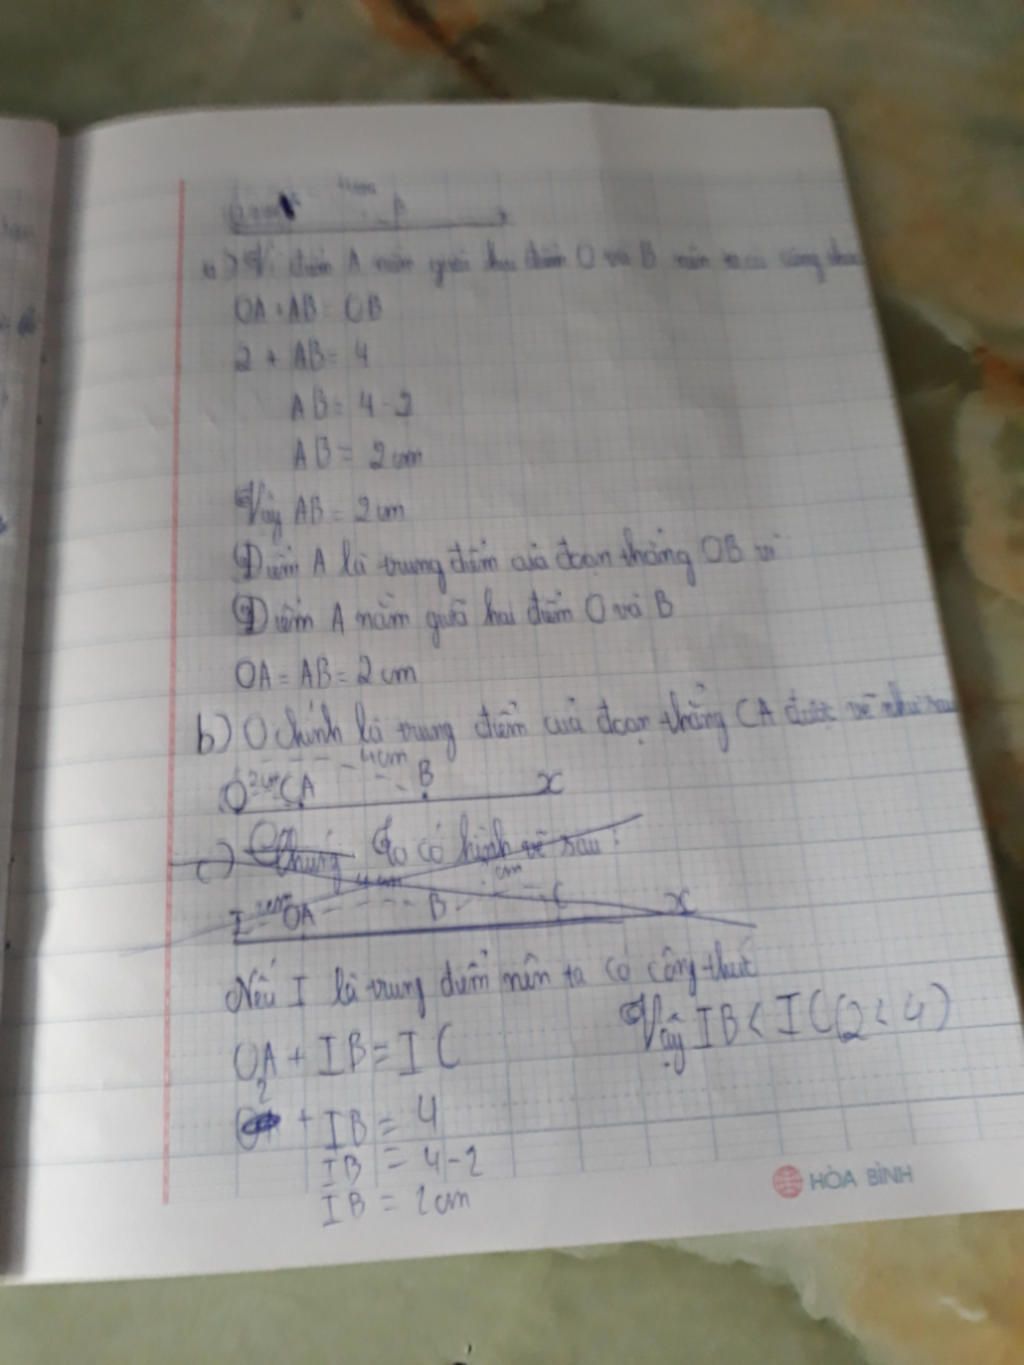 4cm
A
a) Vì điểm A nằm giữa hai điểm O và B nên
OA + AB = OB
2 + AB = 4
AB = 4 - 2
AB = 2cm
Vậy AB = 2cm
Điểm A là trung điểm của đoạn thẳng OB vì
Điểm A nằm giữa hai điểm O và B
OA = AB = 2cm
b) O chính là trung điểm của đoạn thẳng CA được vẽ như sau
4cm
O 2cm CA B x
c) Chúng ta có hình vẽ sau:
4cm cm
I 2cm OA B C x
Nếu I là trung điểm nên ta có công thức
Vậy IB < IC (2 < 4)
OA + IB = IC
2
+ IB = 4
IB = 4 - 2
IB = 2cm
HÒA BÌNH